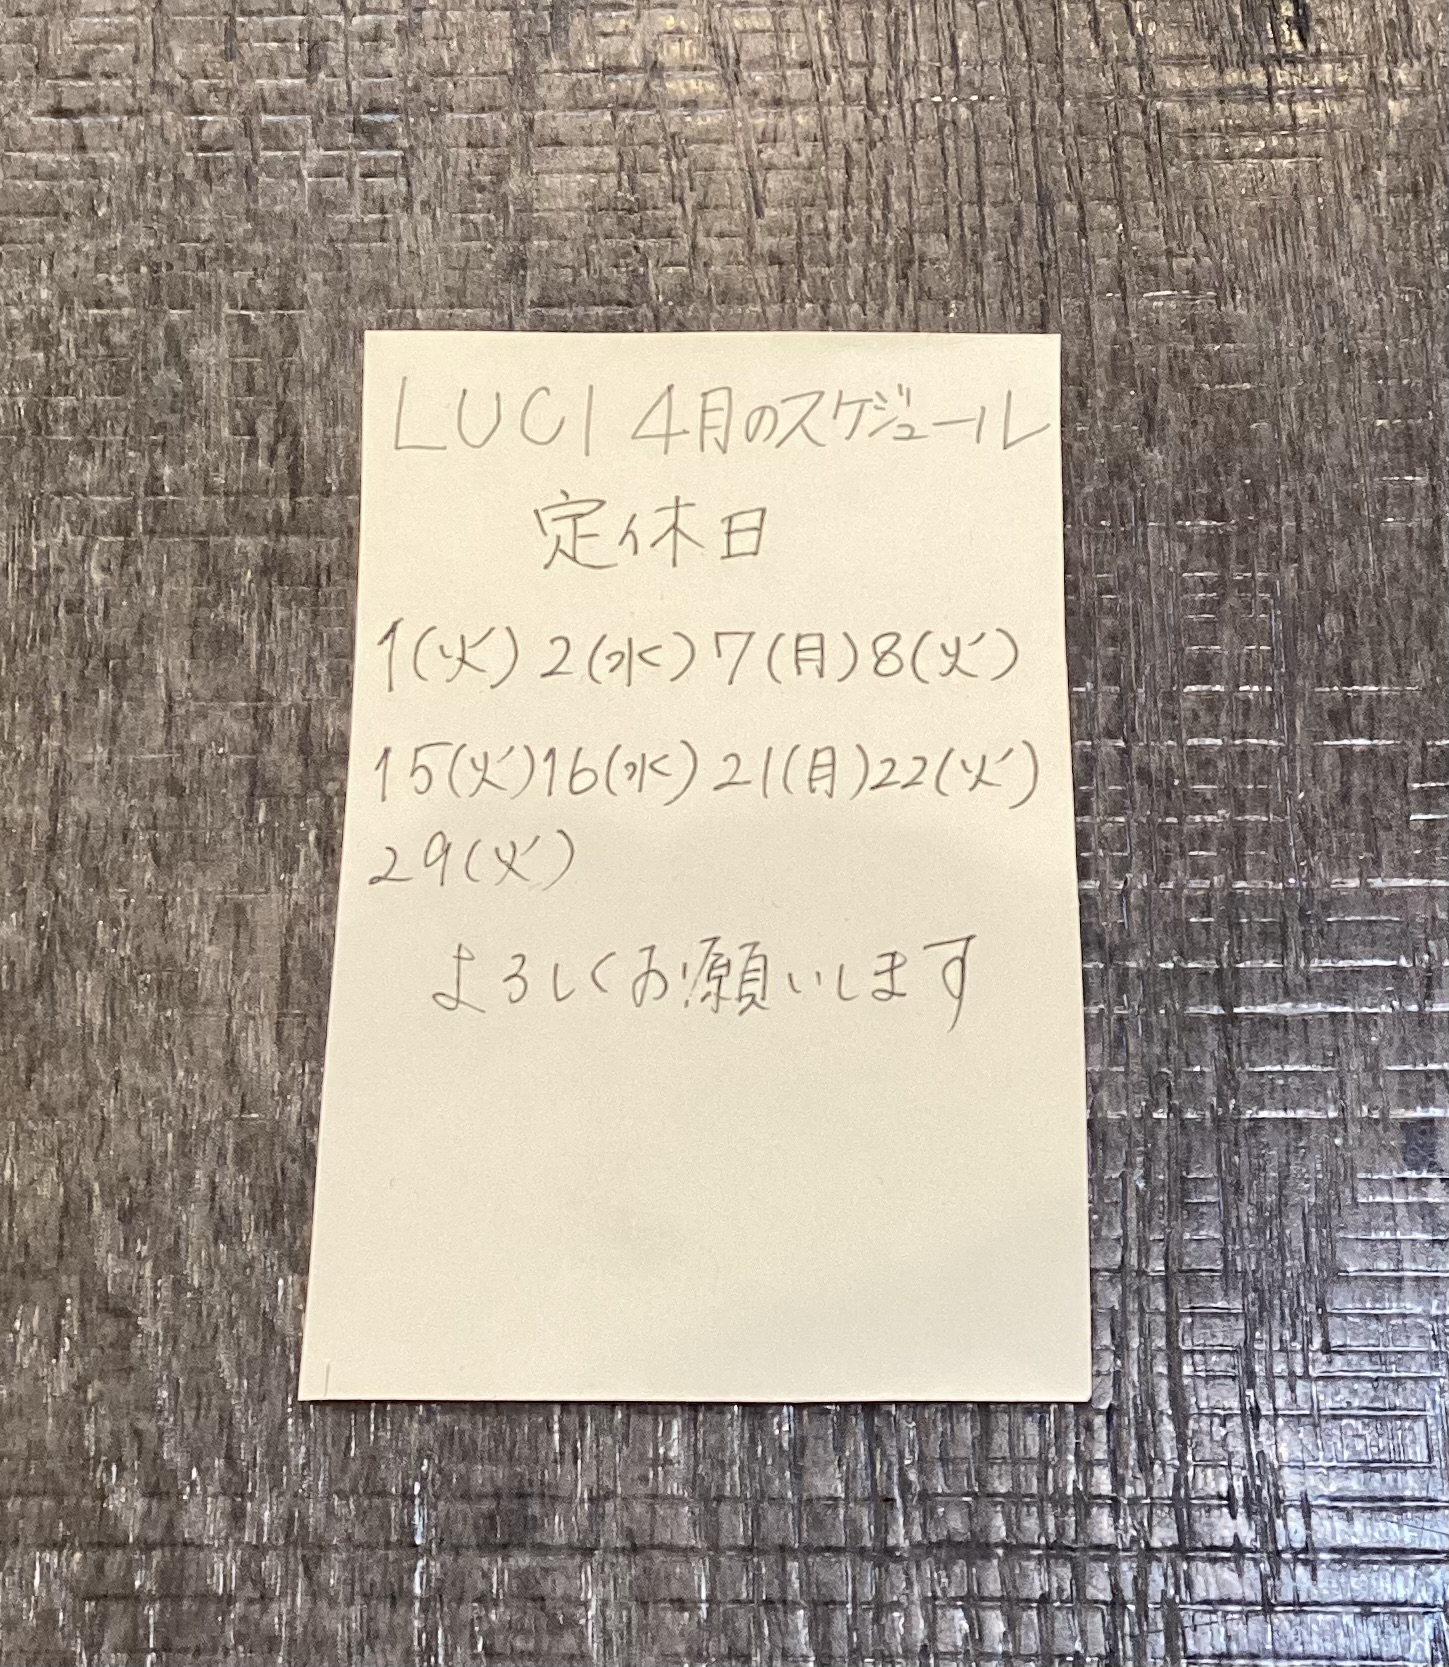 LUCI 4月のスケジュール
定休日
1(火) 2(水) 7(月) 8(火)
15(火) 16(水) 21(月) 22(火)
29(火)
よろしくお願いします